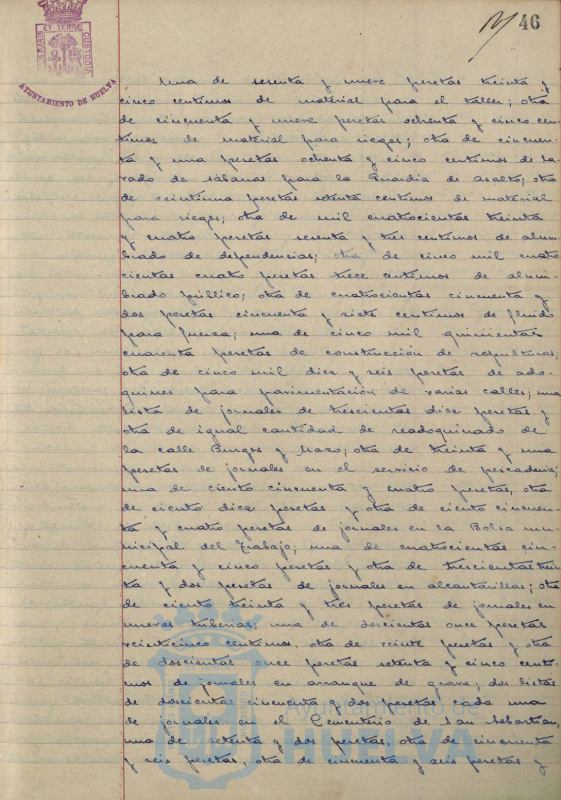 46
PORTUS MARIS ET TERRÆ CUSTODIA
AYUNTAMIENTO DE HUELVA
Una de sesenta y nueve pesetas treinta y
cinco centimos de material para el taller; otra
de cincuenta y nueve pesetas ochenta y cinco cen-
timos de material para riegos; otra de cincuen-
ta y una pesetas ochenta y cinco centimos de la-
vado de sábanas para la Guardia de Asalto; otra
de veintiuna pesetas setenta centimos de material
para riegos; otra de mil cuatrocientas treinta
y cuatro pesetas sesenta y tres centimos de alum-
brado de dependencias; otra de cinco mil cuatro
cientas cuatro pesetas trece centimos de alum-
brado público; otra de cuatrocientas cincuenta y
dos pesetas cincuenta y siete centimos de fluido
para fuerza; una de cinco mil quinientas
cuarenta pesetas de construcción de sepulturas;
otra de cinco mil diez y seis pesetas de ado-
quines para pavimentación de varias calles; una
lista de jornales de trescientas diez pesetas y
otra de igual cantidad de readoquinado de
la calle Burgos y Mazo; otra de treinta y una
pesetas de jornales en el servicio de pescaderia;
una de ciento cincuenta y cuatro pesetas, otra
de ciento diez pesetas y otra de ciento cincuen-
ta y cuatro pesetas de jornales en la Bolsa mu-
nicipal del Trabajo; una de cuatrocientas cin-
cuenta y cinco pesetas y otra de trescientas trein
ta y dos pesetas de jornales en alcantarillas; otra
de ciento treinta y tres pesetas de jornales en
nuevas tuberias; una de doscientas once pesetas
veinticinco centimos, otra de veinte pesetas y otra
de doscientas once pesetas setenta y cinco centi-
mos de jornales en arranque de grava; dos listas
de doscientas cincuenta y dos pesetas cada una
de jornales en el Cementerio de San Sebastian,
una de setenta y dos pesetas, otra de cincuenta
y seis pesetas, otra de cincuenta y seis pesetas y
Ayuntamiento de
HUELVA